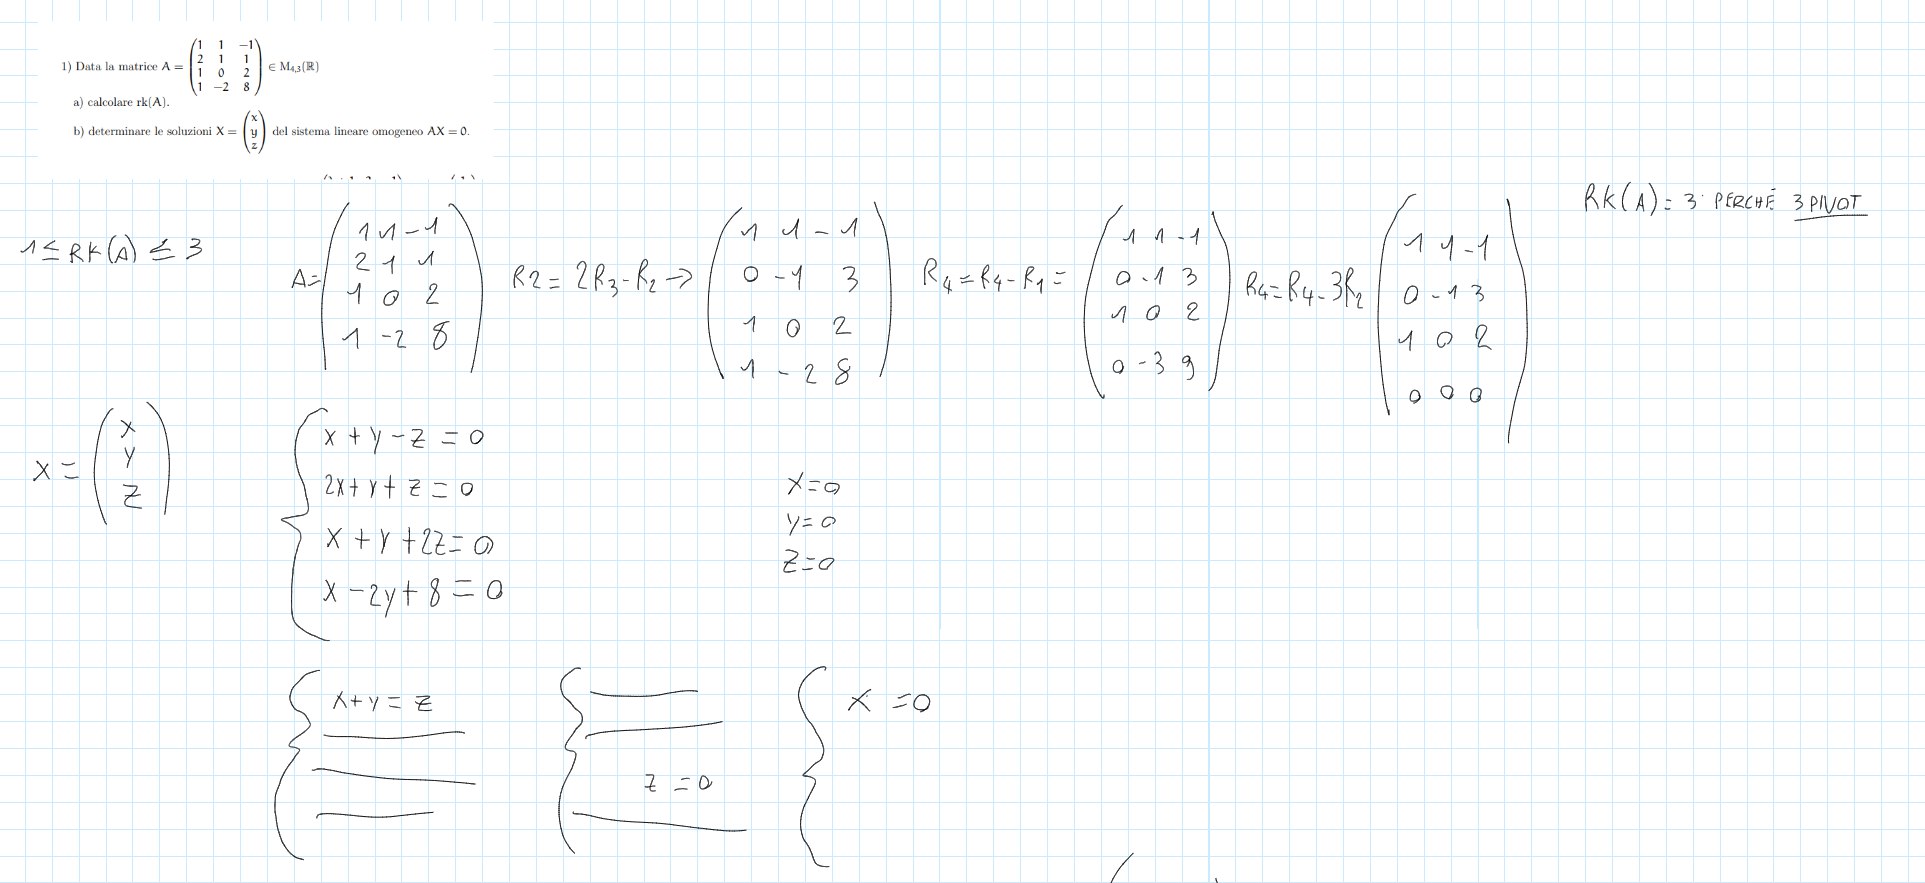 1) Data la matrice A = (1 1 −1
2 1 1
1 0 2
1 −2 8) ∈ M4,3(ℝ)
a) calcolare rk(A).
b) determinare le soluzioni X = (x
y
z) del sistema lineare omogeneo AX = 0.
1 ≤ RK(A) ≤ 3
A= (1 1 -1
2 1 1
1 0 2
1 -2 8)
R2 = 2R3 - R2 →
(1 1 -1
0 -1 3
1 0 2
1 -2 8)
R4 = R4 - R1 =
(1 1 -1
0 -1 3
1 0 2
0 -3 9)
R4 = R4 - 3R2
(1 1 -1
0 -1 3
1 0 2
0 0 0)
RK(A) = 3 PERCHÉ 3 PIVOT
X = (x
y
z)
x + y - z = 0
2x + y + z = 0
x + y + 2z = 0
x - 2y + 8 = 0
x = 0
y = 0
z = 0
x + y = z
z = 0
x = 0